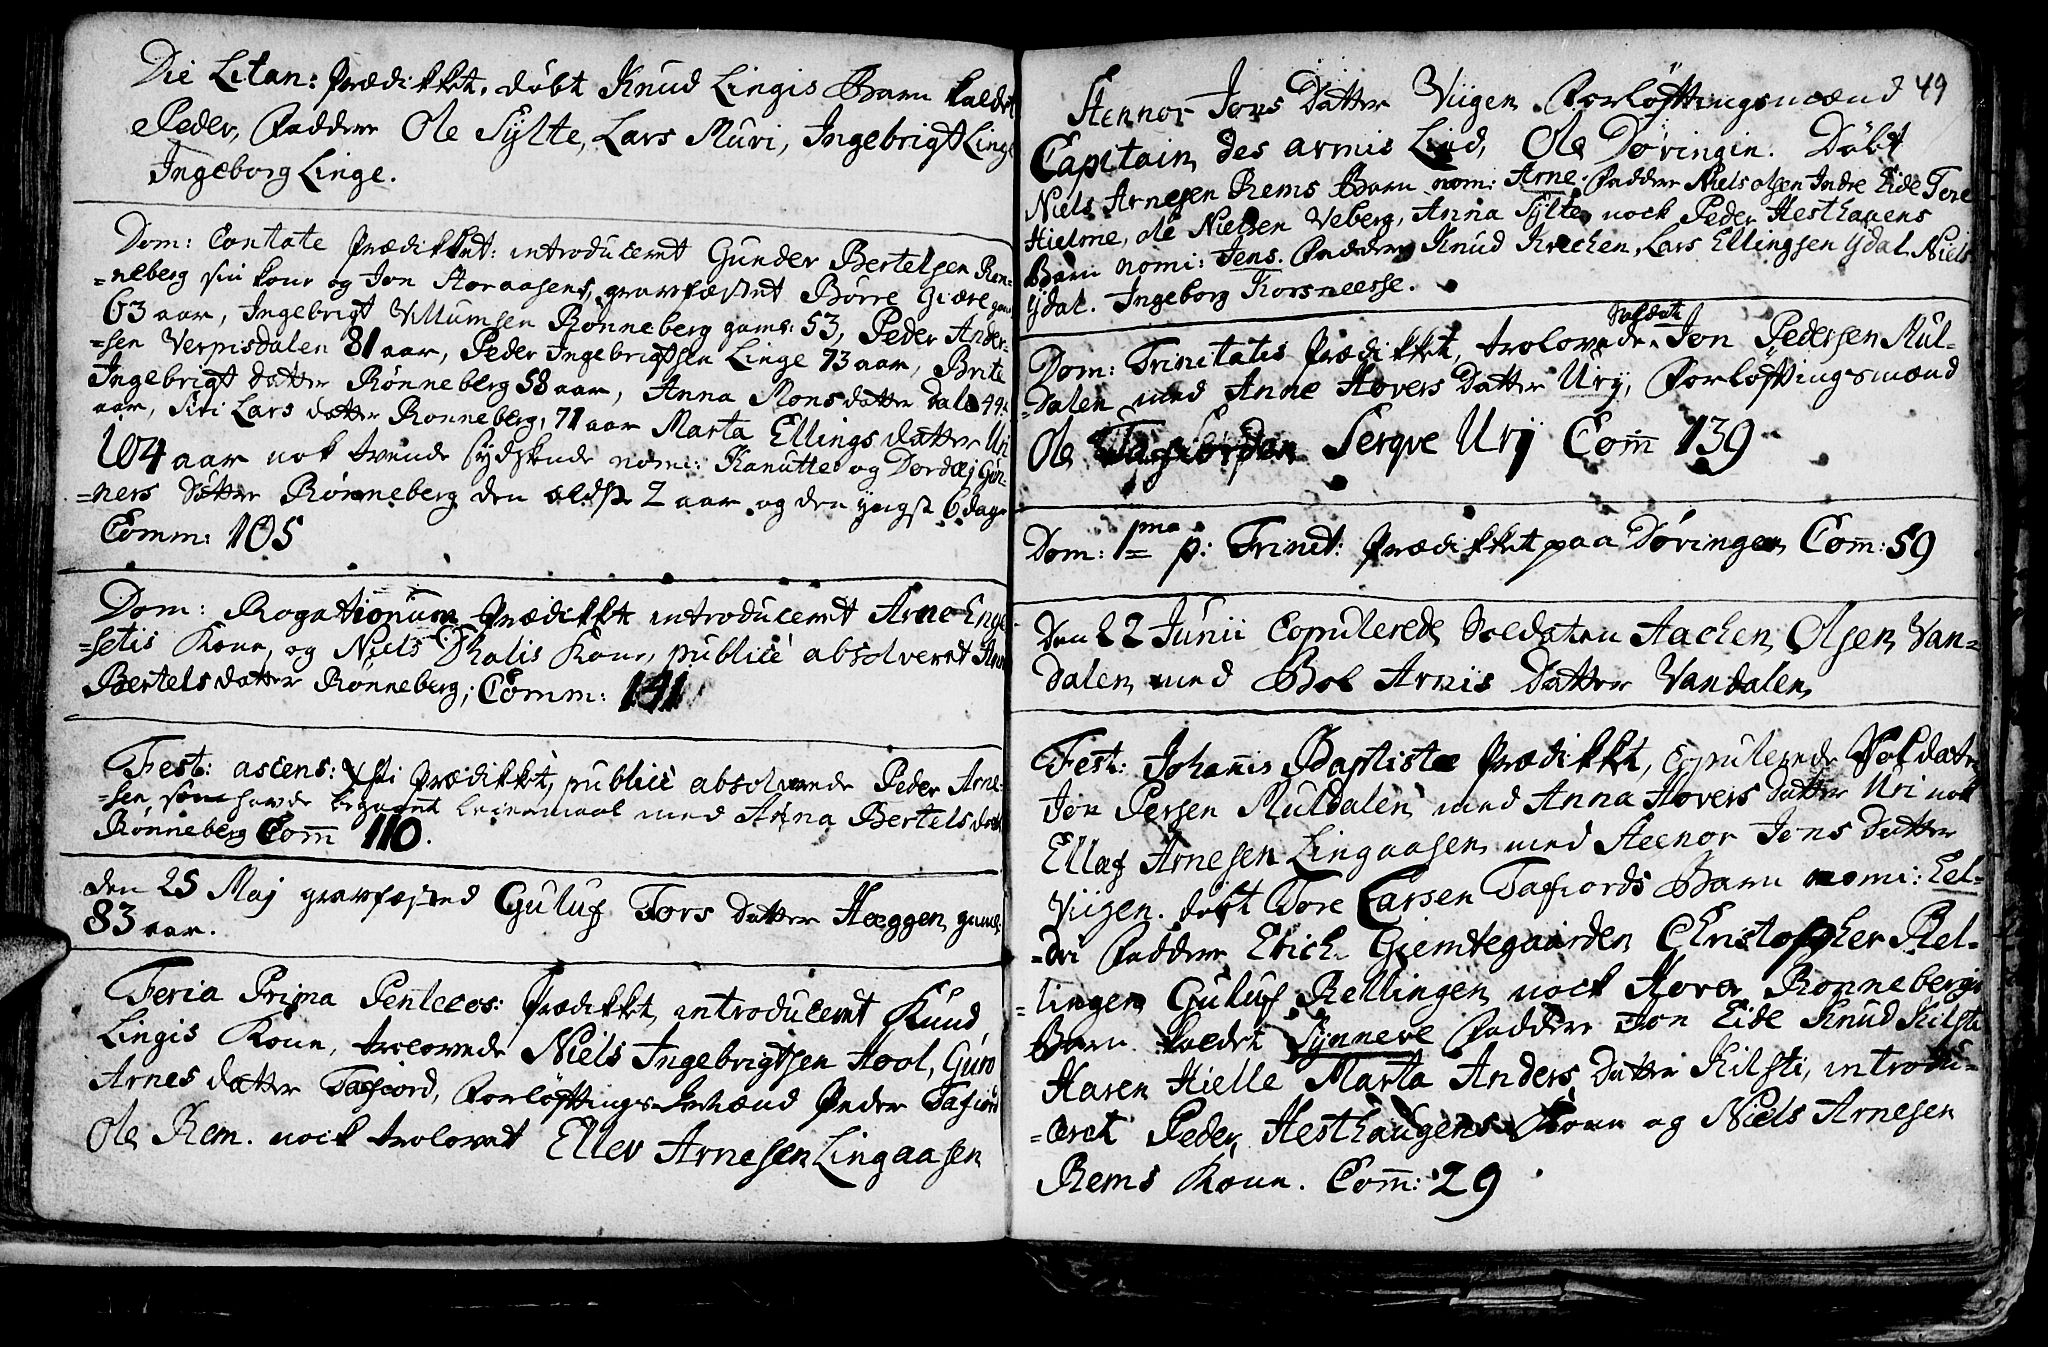 Die Litan: Prædikket, døbt Knud Lingis Barn kaldet
Peder, Faddere Ole Sylte, Lars Muri, Ingebrigt Linge
Ingeborg Linge.
Dom: Cantate Prædikket: introduceret Gunder Bertelsen Rön-
=neberg sin kone og Jon Storaasens, gravfæstet Börre Giære gam
63 aar, Ingebrigt Villumsen Rönneberg gaml: 53, Peder Ander-
=sen Verpisdalen 81 aar, Peder Ingebrigtsen Linge 73 aar, Brite
Ingebrigt datter Rönneberg 58 aar, Anna Monsdatter Dale 44
aar, Siri Lars datter Rönneberg, 71 aar Marta Ellings datter Uri
104 aar nok tvende sydskende nomi: Kanutte og Dordæj Gun-
=ners Datter Rönneberg den eldste 2 aar og den yngst 6 dage
Comm: 105
Dom: Rogationum Prædikket introduceret Arne Enge
=setis Kone, og Niels Thalis Kone, publicè absolveret Anna
Bertelsdatter Rönneberg; Comm: 131
Fest: ascens: Xsti Prædikket, publicè absolverede Peder Arne-
=sen som havde begaaet leiermaal med Anna Bertelsdaatt
Rönneberg Com̄ 110.
den 25 Maj gravfæsted Guluf Tors datter Hæggen gaml:
83 aar.
Feria Prima Pentecos: Prædikket, introduceret Knud
Lingis Kone, trolovede Niels Ingebrigtsen Hool, Guro
Arnes datter Tafiord, Forløftings-Mænd Peder Tafiord
Ole Rem. nock trolovet Ellev Arnesen Lingaasen
49
Stennor Jons Datter Viigen Forløftingsmænd
Capitain des armis Lind, Ole Døvingin. Døbt
Niels Arnesen Rems Barn nom: Arne. Faddere Niels olsen Indre Eide Tore
Hielme, ole Nielsen Veberg, Anna Sylte, nock Peder Hesthauens
Barn nomi: Jens. Faddere Knud Krechen, Lars Ellingsen Ydal Niels
Ydal. Ingeborg Korsneesse.
Soldat
Dom: Trinitatis Prædikket, trolovede Jon Pedersen Mul-
=dalen med Anne Hovers Datter Urÿ, Forløftingsmænd
Ole Tafiorden Serqve Urÿ Com̄ 139
Dom: 1ma p: Trinet: Prædikket paa Døvingen Com̄: 59
Den 22 Junii Copulerede Soldaten Aachen Olsen Van=
dalen med Bol Arnis Datter Vandalen,
Fest: Johan̄is Baptistæ Prædikket, copulerede Soldaten
Jon Persen Muldalen med Anna Hovers datter Uri nok
Ellaf Arnesen Lingaasen med Steenor Jons datter
Viigen. døbt Tore Larsen Tafiords Barn nomi: Eel-
=dri Faddere Erich Giemtegaarden Christopher Rel-
=lingen Guluf Rellingen, nock Hover Rönnebergs
Barn kaldet Synneve Faddere Jon Eide Knud Kilsti
Karen Hielle Marta Anders Datter Kilsti, introdu-
=ceret Peder Hesthaugens Kone og Niels Arnesen
Rems Kone. Com̄: 29.